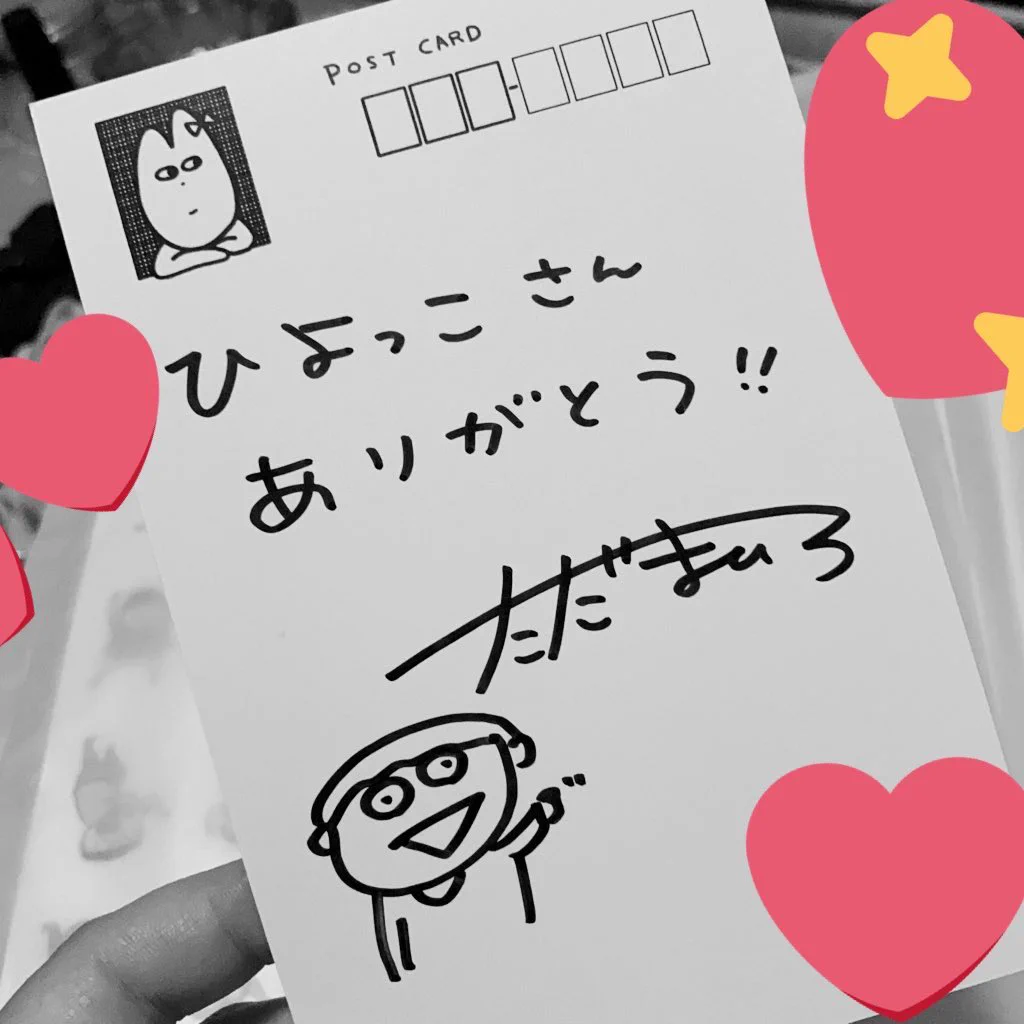 POST CARD
ひよっこさん
ありがとう!!
ただまひろ